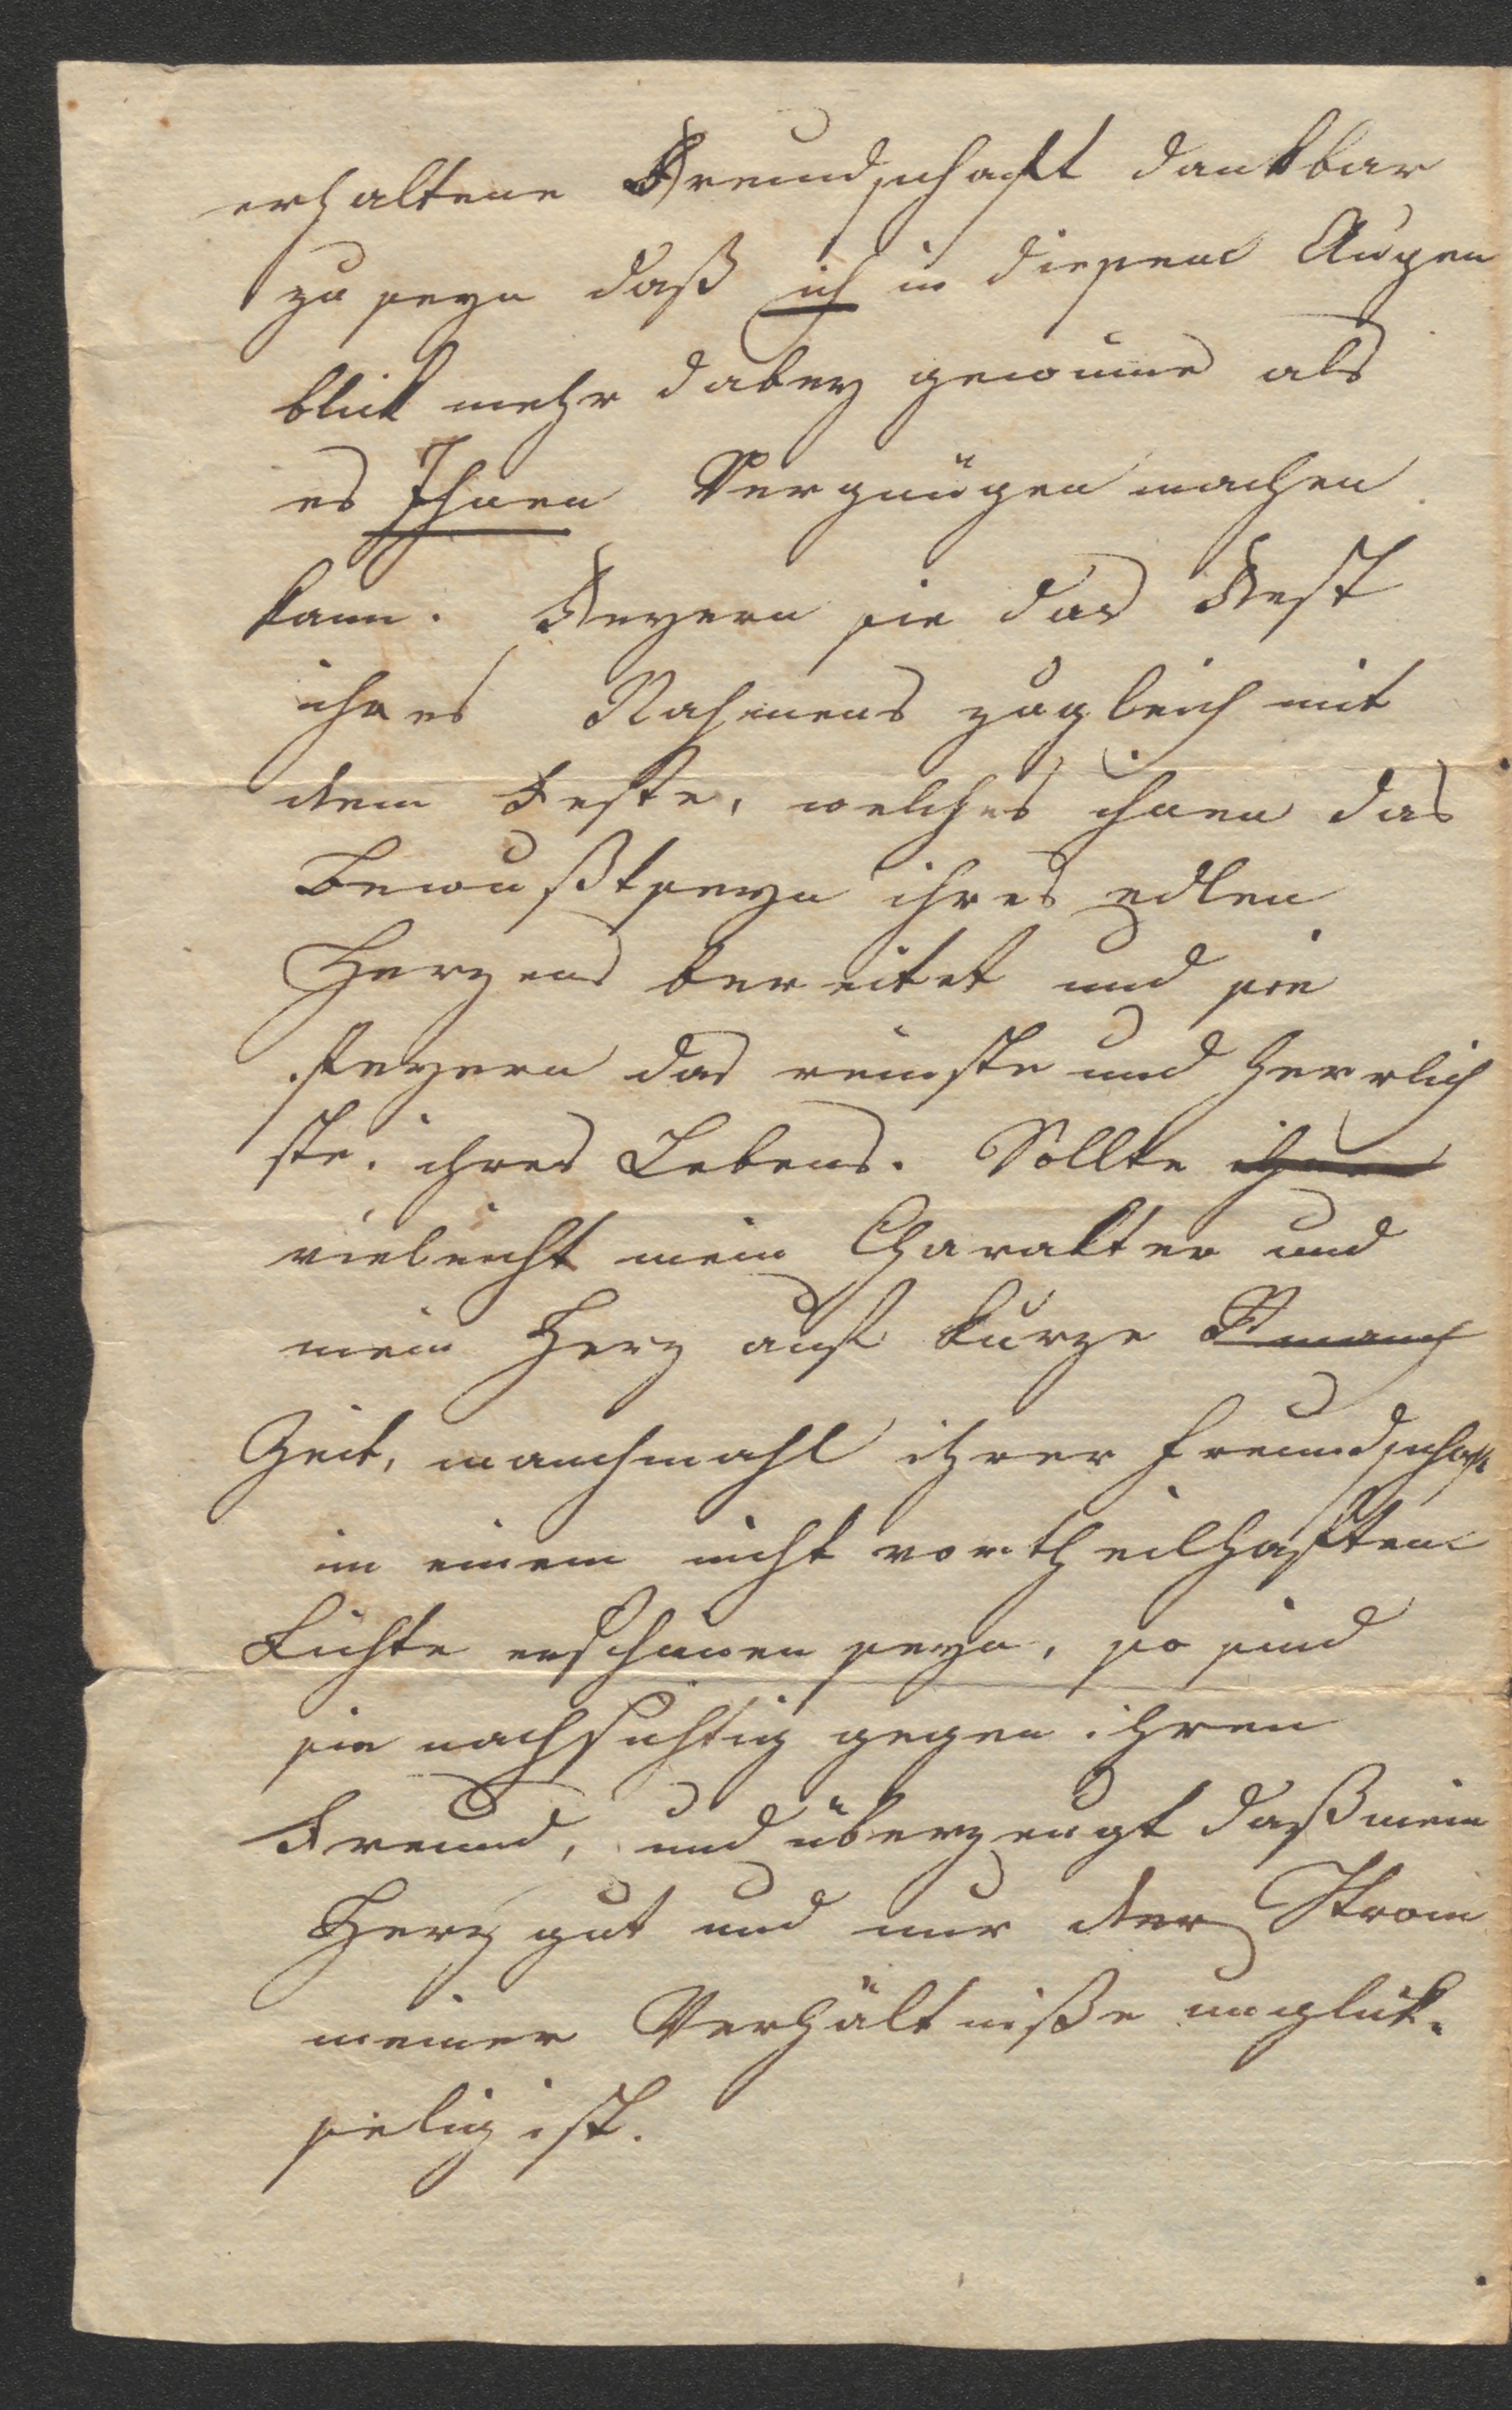 erhaltene Freundschaft dankbar
zu seyn daß ich in diesem Augen
blick mehr dabey gewinne als
es Ihnen Vergnügen machen
kann. Feyern sie das Fest
ihres Nahmens zugleich mit
dem Feste, welches ihnen das
Bewußtseyn ihres edlen
Herzens bereitet und sie
feyern das reinste und herrlich
ste ihres Lebens. Sollte ihnen
vieleicht mein Charakter und
mein Herz auf kurze
Zeit, manchmahl ihrer Freundschaft
in einem nicht vortheilhaften
Lichte erschienen seyn, so sind
sie nachsichtig gegen ihren
Freund, und überzeugt daß mein
Herz gut und nur der Strom
meiner Verhältniße unglük-
selig ist.